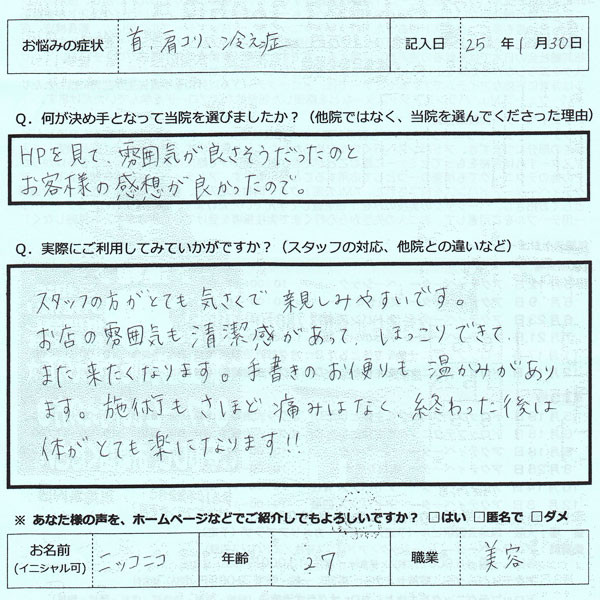 お悩みの症状 首、肩コリ、冷え症 記入日 25 年 1 月 30 日
Q．何が決め手となって当院を選びましたか？（他院ではなく、当院を選んでくださった理由）
HPを見て、雰囲気が良さそうだったのと
お客様の感想が良かったので。
Q．実際にご利用してみていかがですか？（スタッフの対応、他院との違いなど）
スタッフの方がとても気さくで親しみやすいです。
お店の雰囲気も清潔感があって、ほっこりできて、
また来たくなります。手書きのお便りも温かみがあり
ます。施術もさほど痛みはなく、終わった後は
体がとても楽になります!!
※ あなた様の声を、ホームページなどでご紹介してもよろしいですか？ □はい □匿名で □ダメ
お名前 (イニシャル可) ニッコニコ 年齢 27 職業 美容